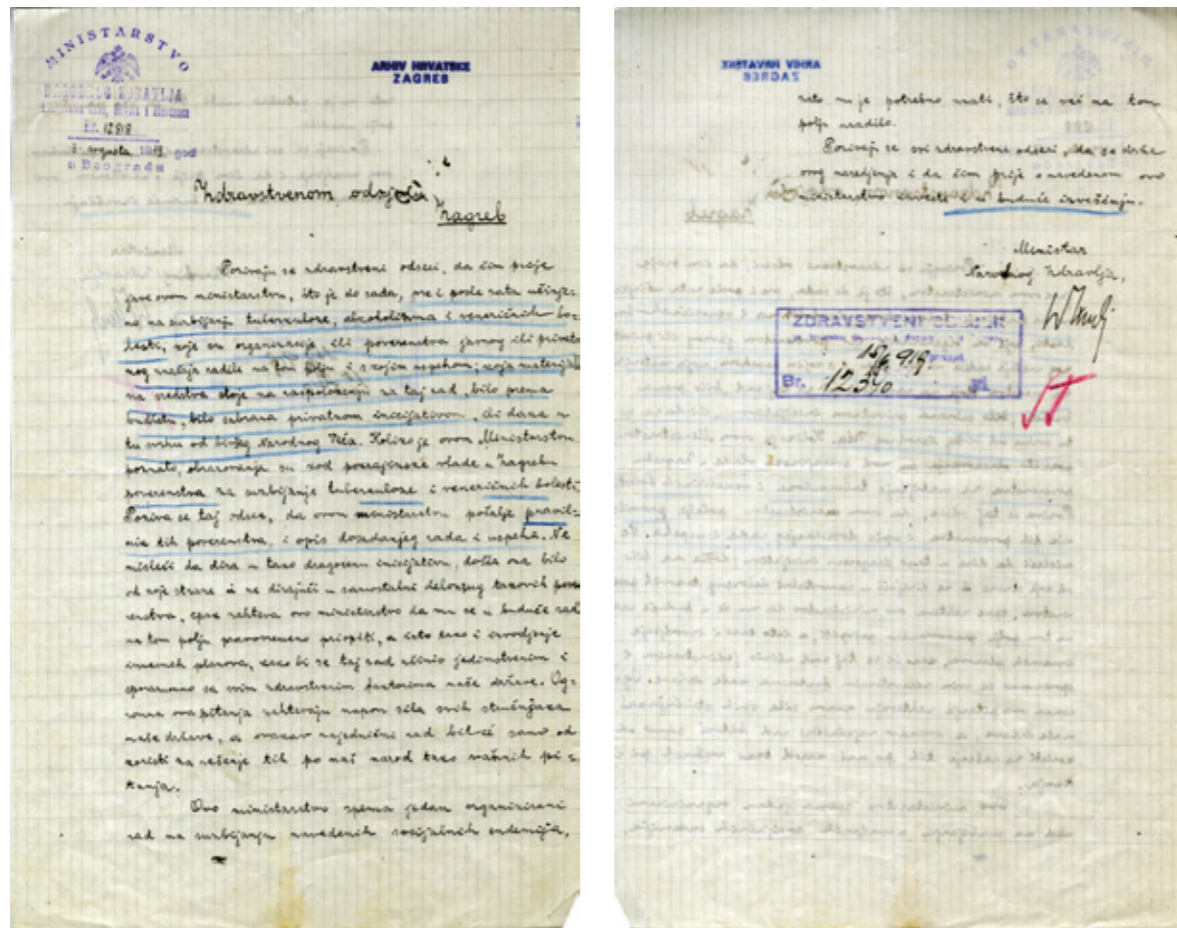 MINISTARSTVO
NARODNOG ZDRAVLJA
Br. 12818
8. avgusta 1919 god
u Beogradu
ARHIV HRVATSKE
ZAGREB
Zdravstvenom odsjeku
Zagreb
Pozivaju se zdravstveni odseci, da čim prije
jave ovom ministarstvu, što je do sada, pre i posle rata učinje-
no na suzbijanju tuberkuloze, alkoholizma i veneričnih bo-
lesti, koje su organizacije, ili poverenstva javnog ili privat-
nog značaja radile na tom polju i s kojim uspehom; koja materijal-
na sredstva stoje na raspoloženju za taj rad, bilo prema
budžetu, bilo sabrana privatnom inicijativom, ili dana u
tu svrhu od bivšeg Narodnog Veća. Koliko je ovom Ministarstvu
poznato, obrazovanja su kod pokrajinske vlade u Zagrebu
poverenstva za suzbijanje tuberkuloze i veneričnih bolesti
Poziva se taj odsek, da ovom ministarstvu pošalje pravil-
nik tih poverenstva, i opis dosadanjeg rada i uspeha. Ne
misleći da dira u tako dragocenu inicijativu, došla ona bilo
od koje strane i ne dirajući u samostalni delokrug takovih pove-
renstva, zahteva ovo ministarstvo da mu se u buduće rad
na tom polju pravovremeno priopšti, a isto tako i izvodjenje
planova, kako bi se taj rad učinio jedinstvenim i
sporazumno sa svim zdravstvenim faktorima naše države. Og-
romna ova pitanja zahtevaju napor sila svih stručnjaka
naše države, a ovakav zajednični rad bit će samo od
koristi za rešenje tih po naš narod tako važnih pi-
tanja.
Ovo ministarstvo sprema jedan organizirani
rad na suzbijanju navedenih socijalnih endemija,
zato mu je potrebno znati, što se već na tom
polju uradilo.
Pozivaju se svi zdravstveni odseci, da se drže
ovog naredjenja i da čim prije o navedenom ovo
ministarstvo izveste i u buduće izvešćuju.
Ministar
Narodnog Zdravlja,
ZDRAVSTVENI ODSJEK
15/8 919
Br. 12390